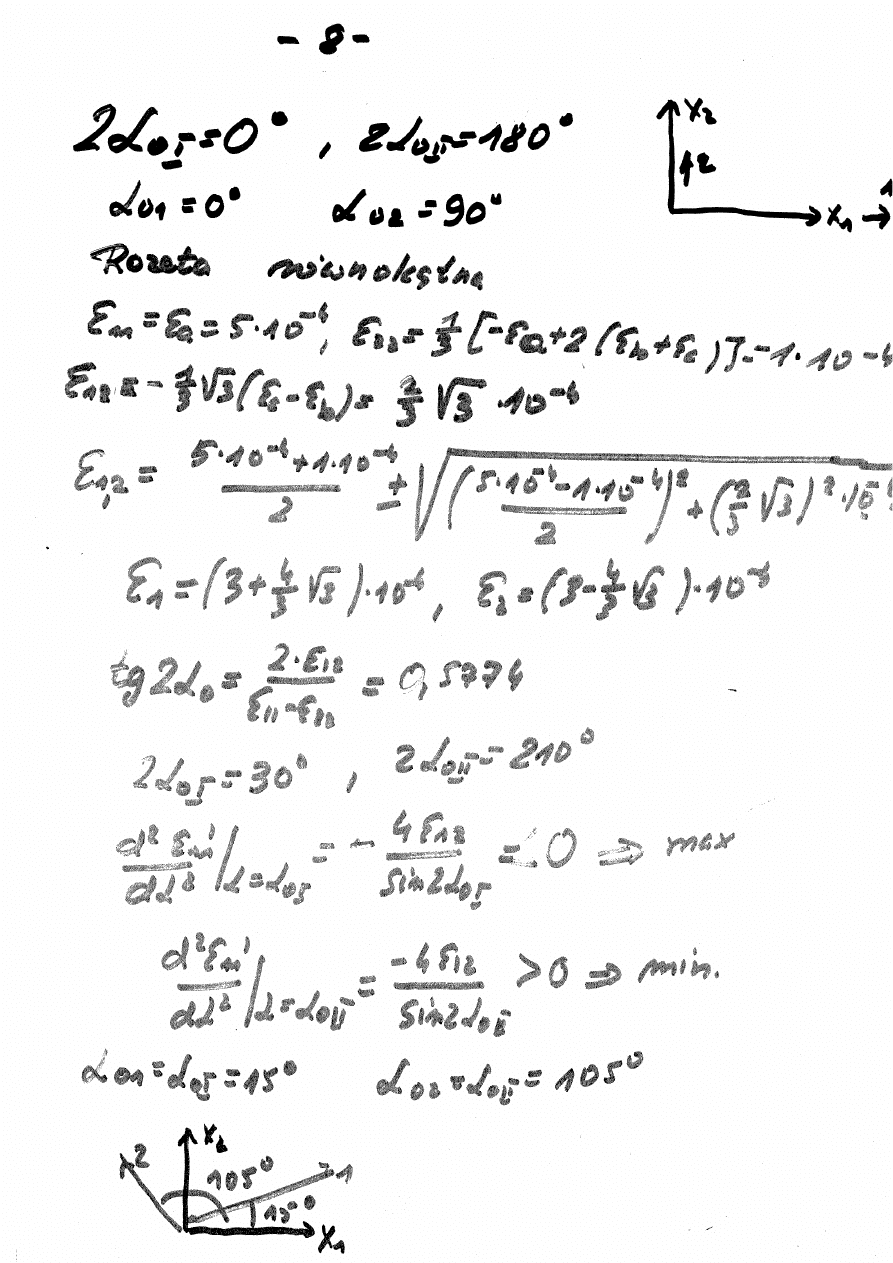 - 8 -
2α₀I = 0° , 2α₀II = 180°
α₀₁ = 0° α₀₂ = 90°
x₂
2
x₁ 1
Rozeta równokątna
ε₁₁ = εa = 5·10⁻⁴, ε₂₂ = 1/3 [-εa + 2(εb + εc)] = 1·10⁻⁴
ε₁₂ = - 1/3 √3 (εc - εb) = 2/3 √3 ·10⁻⁴
ε₁,₂ = (5·10⁻⁴ + 1·10⁻⁴)/2 ± √(((5·10⁻⁴ - 1·10⁻⁴)/2)² + (2/3 √3)² ·10
ε₁ = (3 + 4/3 √3)·10⁻⁴, ε₂ = (3 - 4/3 √3)·10⁻⁴
tg2α₀ = 2·ε₁₂/(ε₁₁ - ε₂₂) = 0,5774
2α₀I = 30° , 2α₀II = 210°
d²ε₁₁'/dα² |α=α₀I = - 4ε₁₂/sin2α₀I < 0 ⇒ max
d²ε₁₁'/dα² |α=α₀II = -4ε₁₂/sin2α₀II > 0 ⇒ min.
α₀₁ = α₀I = 15° α₀₂ = α₀II = 105°
2 x₂
105° 1
15°
x₁